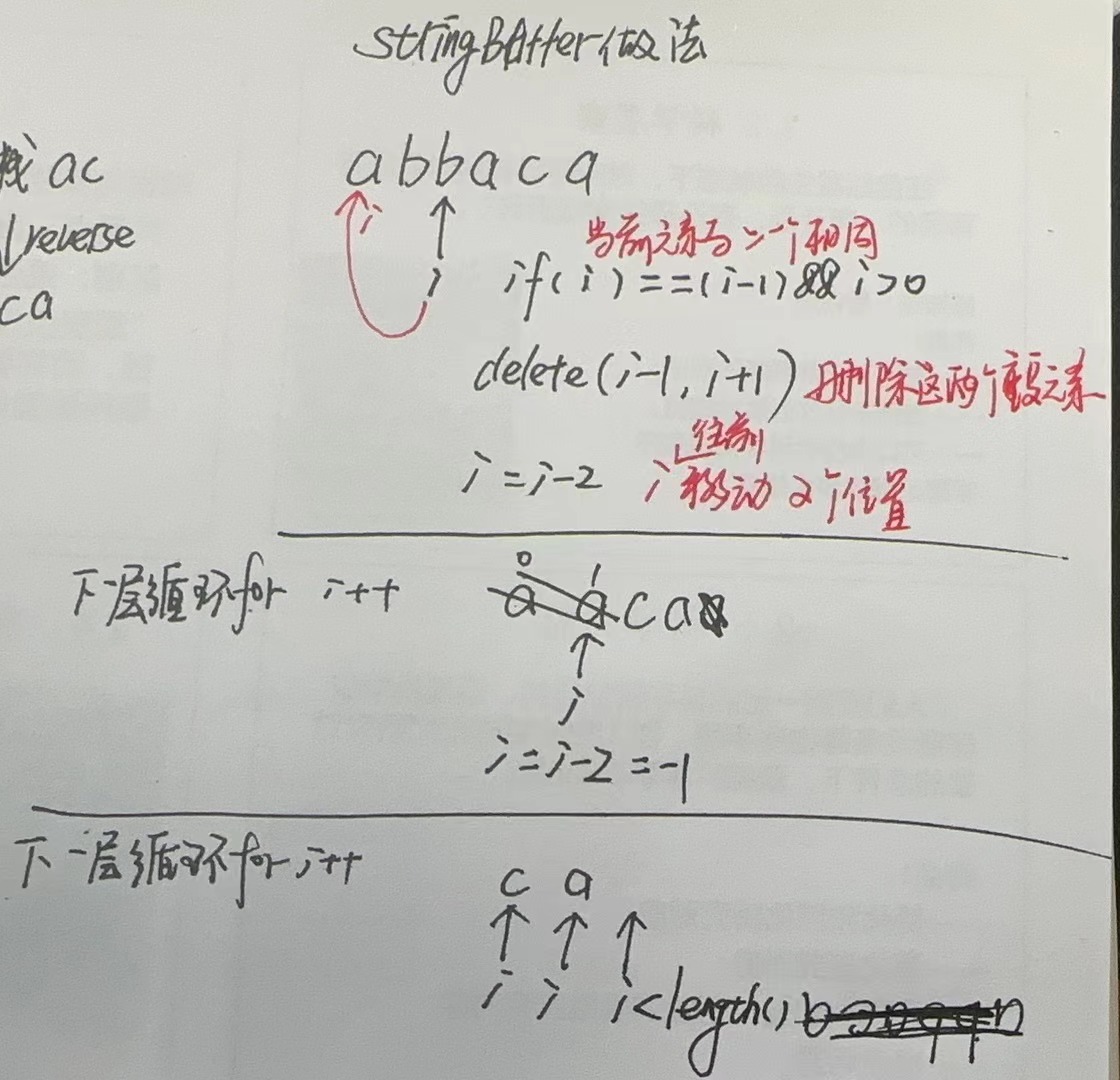 stringBuffer做法
栈 ac
reverse
ca
abbaca
i
i
当前元素与上一个相同
if(i)==(i-1)&&i>0
delete(i-1,i+1) 删除这两个元素
往前
i=i-2 i移动2个位置
下一层循环for i++
0 1
a a c a
i
i=i-2=-1
下一层循环for i++
c a
i i i<length()